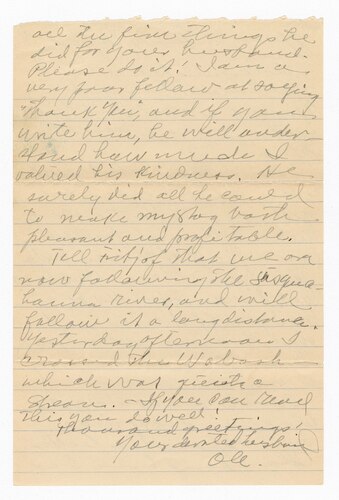 all the fine things he
did for your husband.
Please do it! I am a
very poor fellow at saying
"Thank You", and if you
write him, he will under
stand how much I
valued his kindness. He
surely did all he could
to make my stay both
pleasant and profitable.
Tell that we are
now following the Susque
hanna river, and will
follow it a long distance.
Yesterday afternoon I
crossed the Wabash
which was quite a
stream. - If you can read
this you do well!
Thousand greetings!
Your devoted husband
Ole.